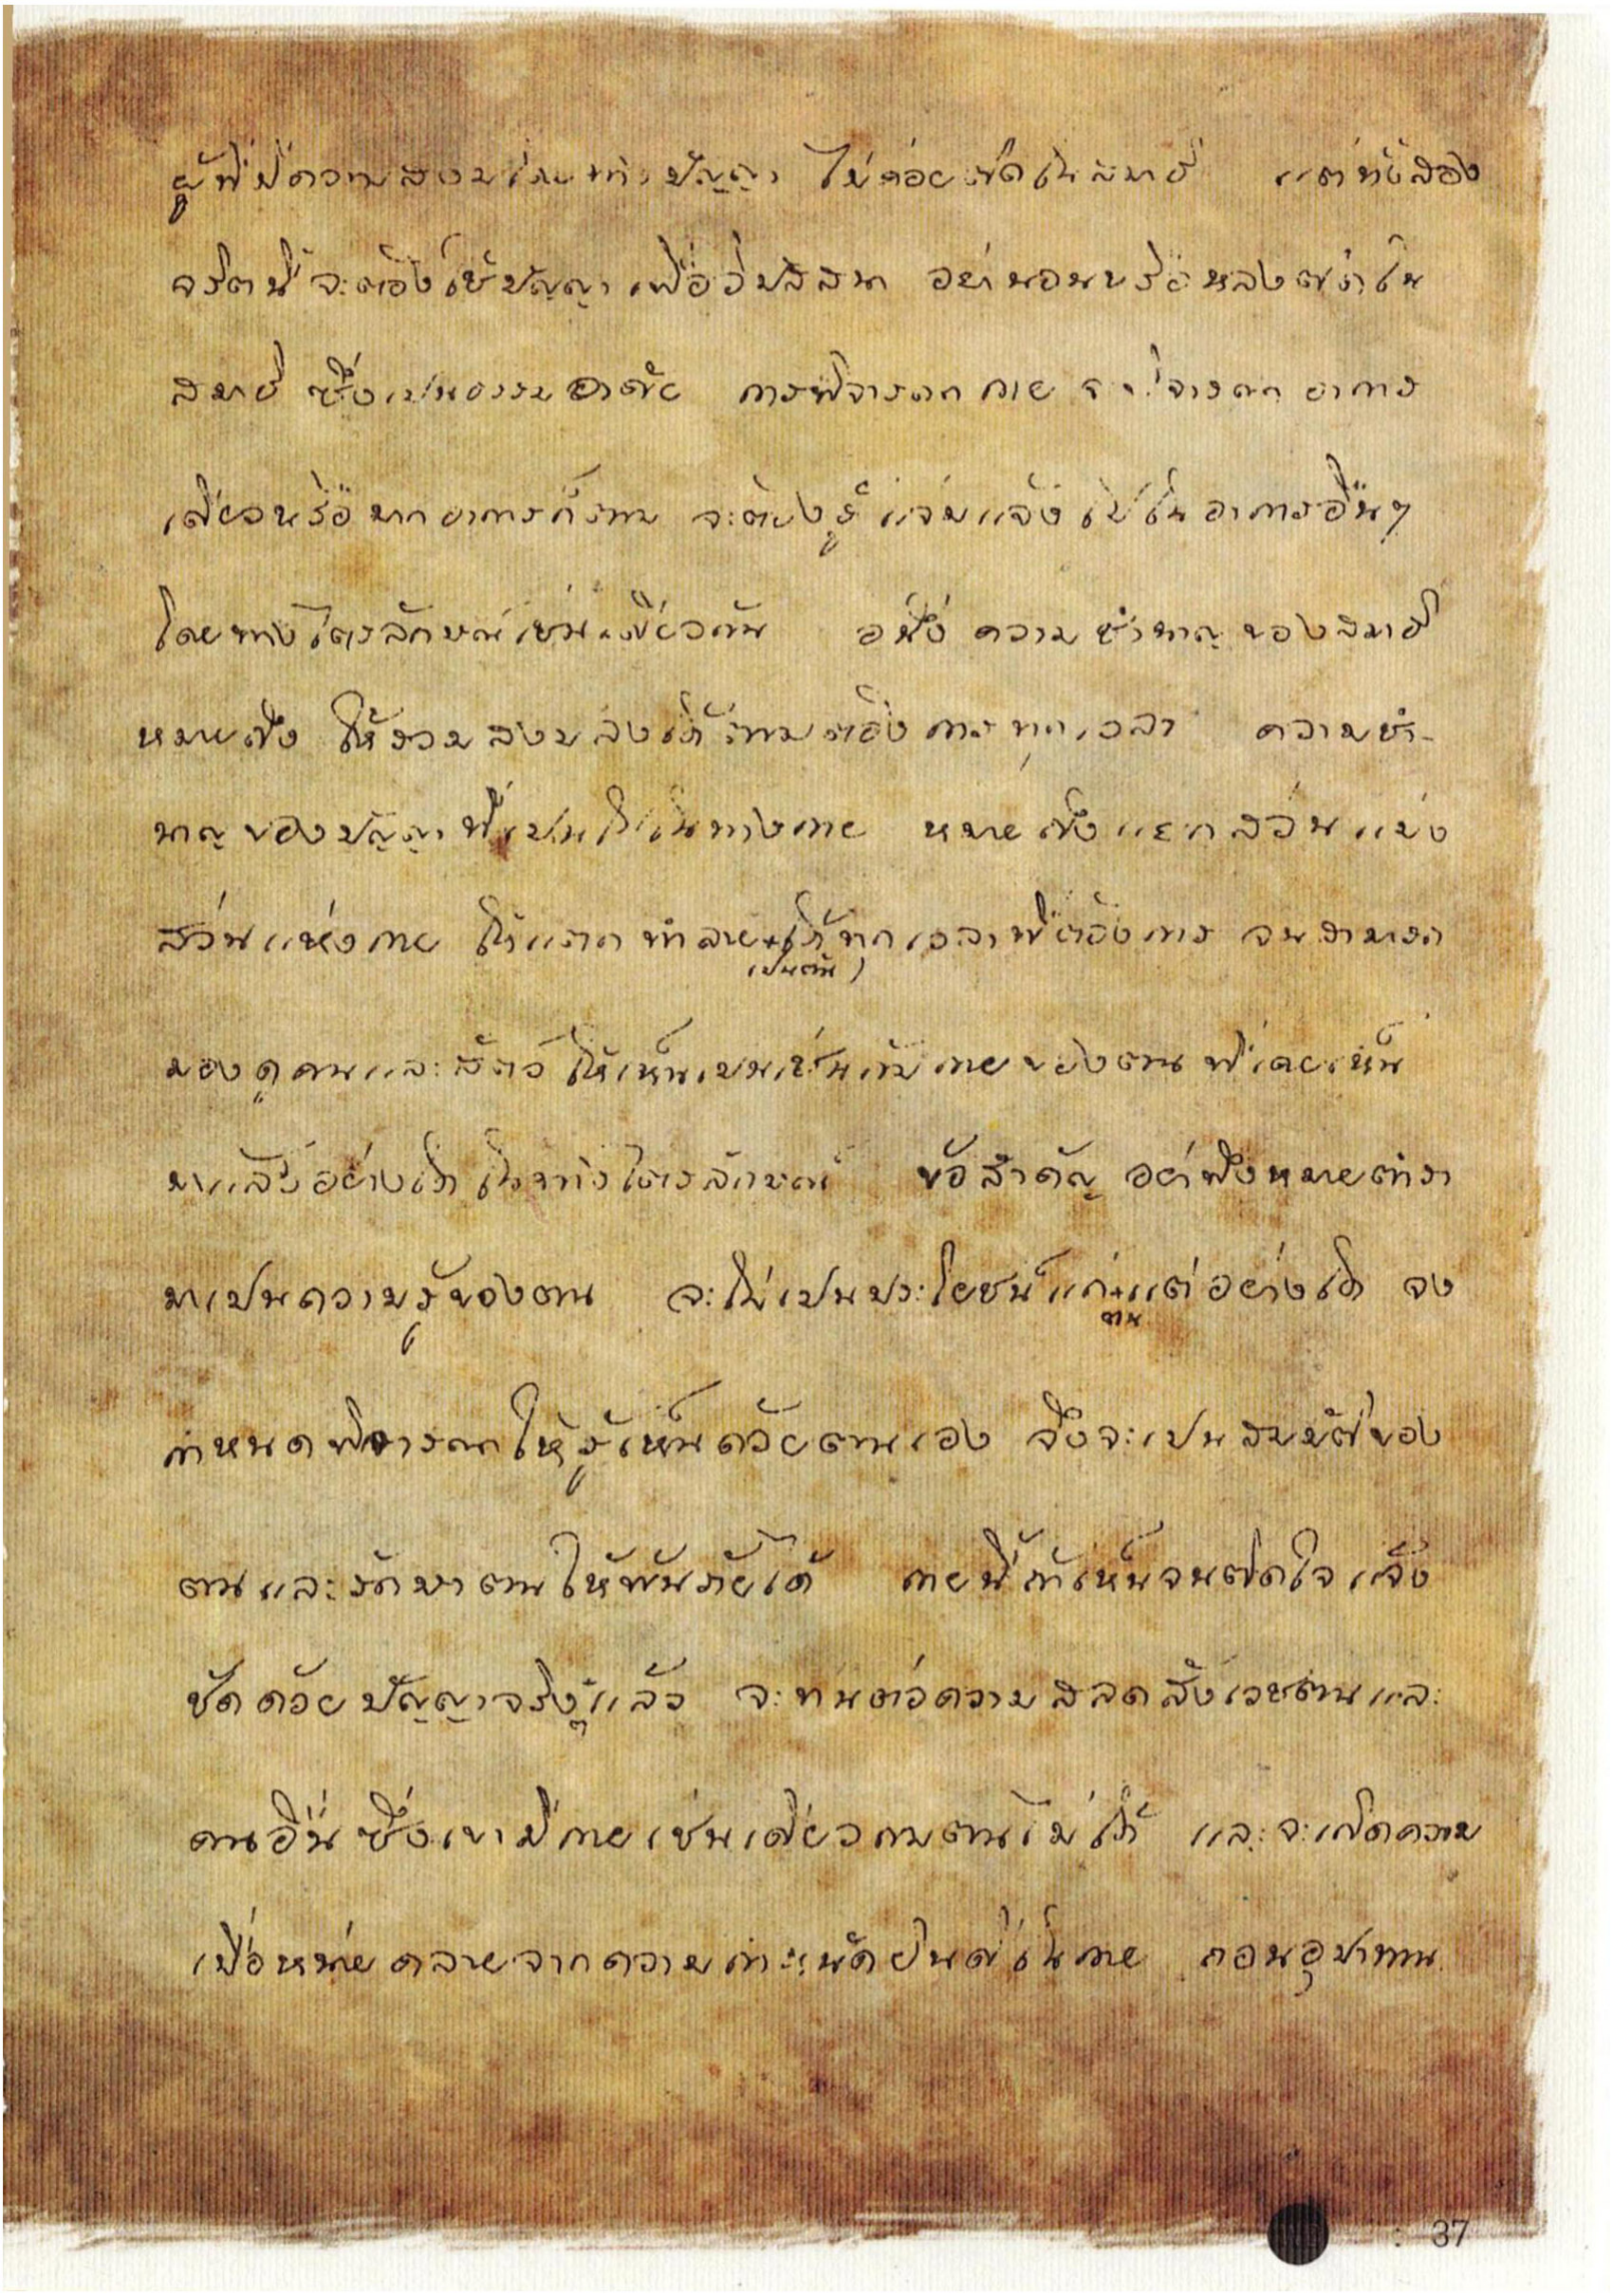 ผู้ที่มีความสงบโดยทางปัญญา ไม่ค่อยติดในสมาธิ แต่ทั้งสอง
จริตนี้ จะต้องใช้ปัญญา เพื่อวิปัสสนา อย่านอนหรือหลงติดใน
สมาธิ ซึ่งเปนธรรมอาศัย การพิจารณากาย จะพิจารณาอาการ
เดียวหรือมากอาการก็ตาม จะต้องรู้แจ่มแจ้งไปในอาการอื่นๆ
โดยทางไตรลักษณ์เช่นเดียวกัน อนึ่ง ความชำนาญของสมาธิ
หมายถึง ให้รวมสงบลงได้ตามต้องการทุกเวลา ความชำ-
นาญของปัญญาที่เปนไปในทางกาย หมายถึงแยกส่วนแบ่ง
ส่วนแห่งกาย ให้แตกทำลาย+ได้ทุกเวลาที่ต้องการ จนสามารถ
(เปนต้น)
มองดูคนและสัตว์ ให้เห็นเปนเช่นกับกายของตนที่เคยเห็น
มาแล้วอย่างใด ในทางไตรลักษณ์ ข้อสำคัญ อย่าพึงหมายตำรา
มาเปนความรู้ของตน จะไม่เปนประโยชน์แก่+แต่อย่างใด จง
ตน
กำหนดพิจารณาให้รู้เห็นด้วยตนเอง จึงจะเปนสมบัติของ
ตนและรักษาตนให้พ้นภัยได้ กายนี้ถ้าเห็นจนติดใจแจ้ง
ชัดด้วยปัญญาจริงๆแล้ว จะทนต่อความสลดสังเวชตนและ
คนอื่น ซึ่งเขามีกายเช่นเดียวกบตนไม่ได้ และจะเกิดความ
เบื่อหน่ายคลายจากความกำหนัดยินดีในกาย ถอนอุปาทาน
37